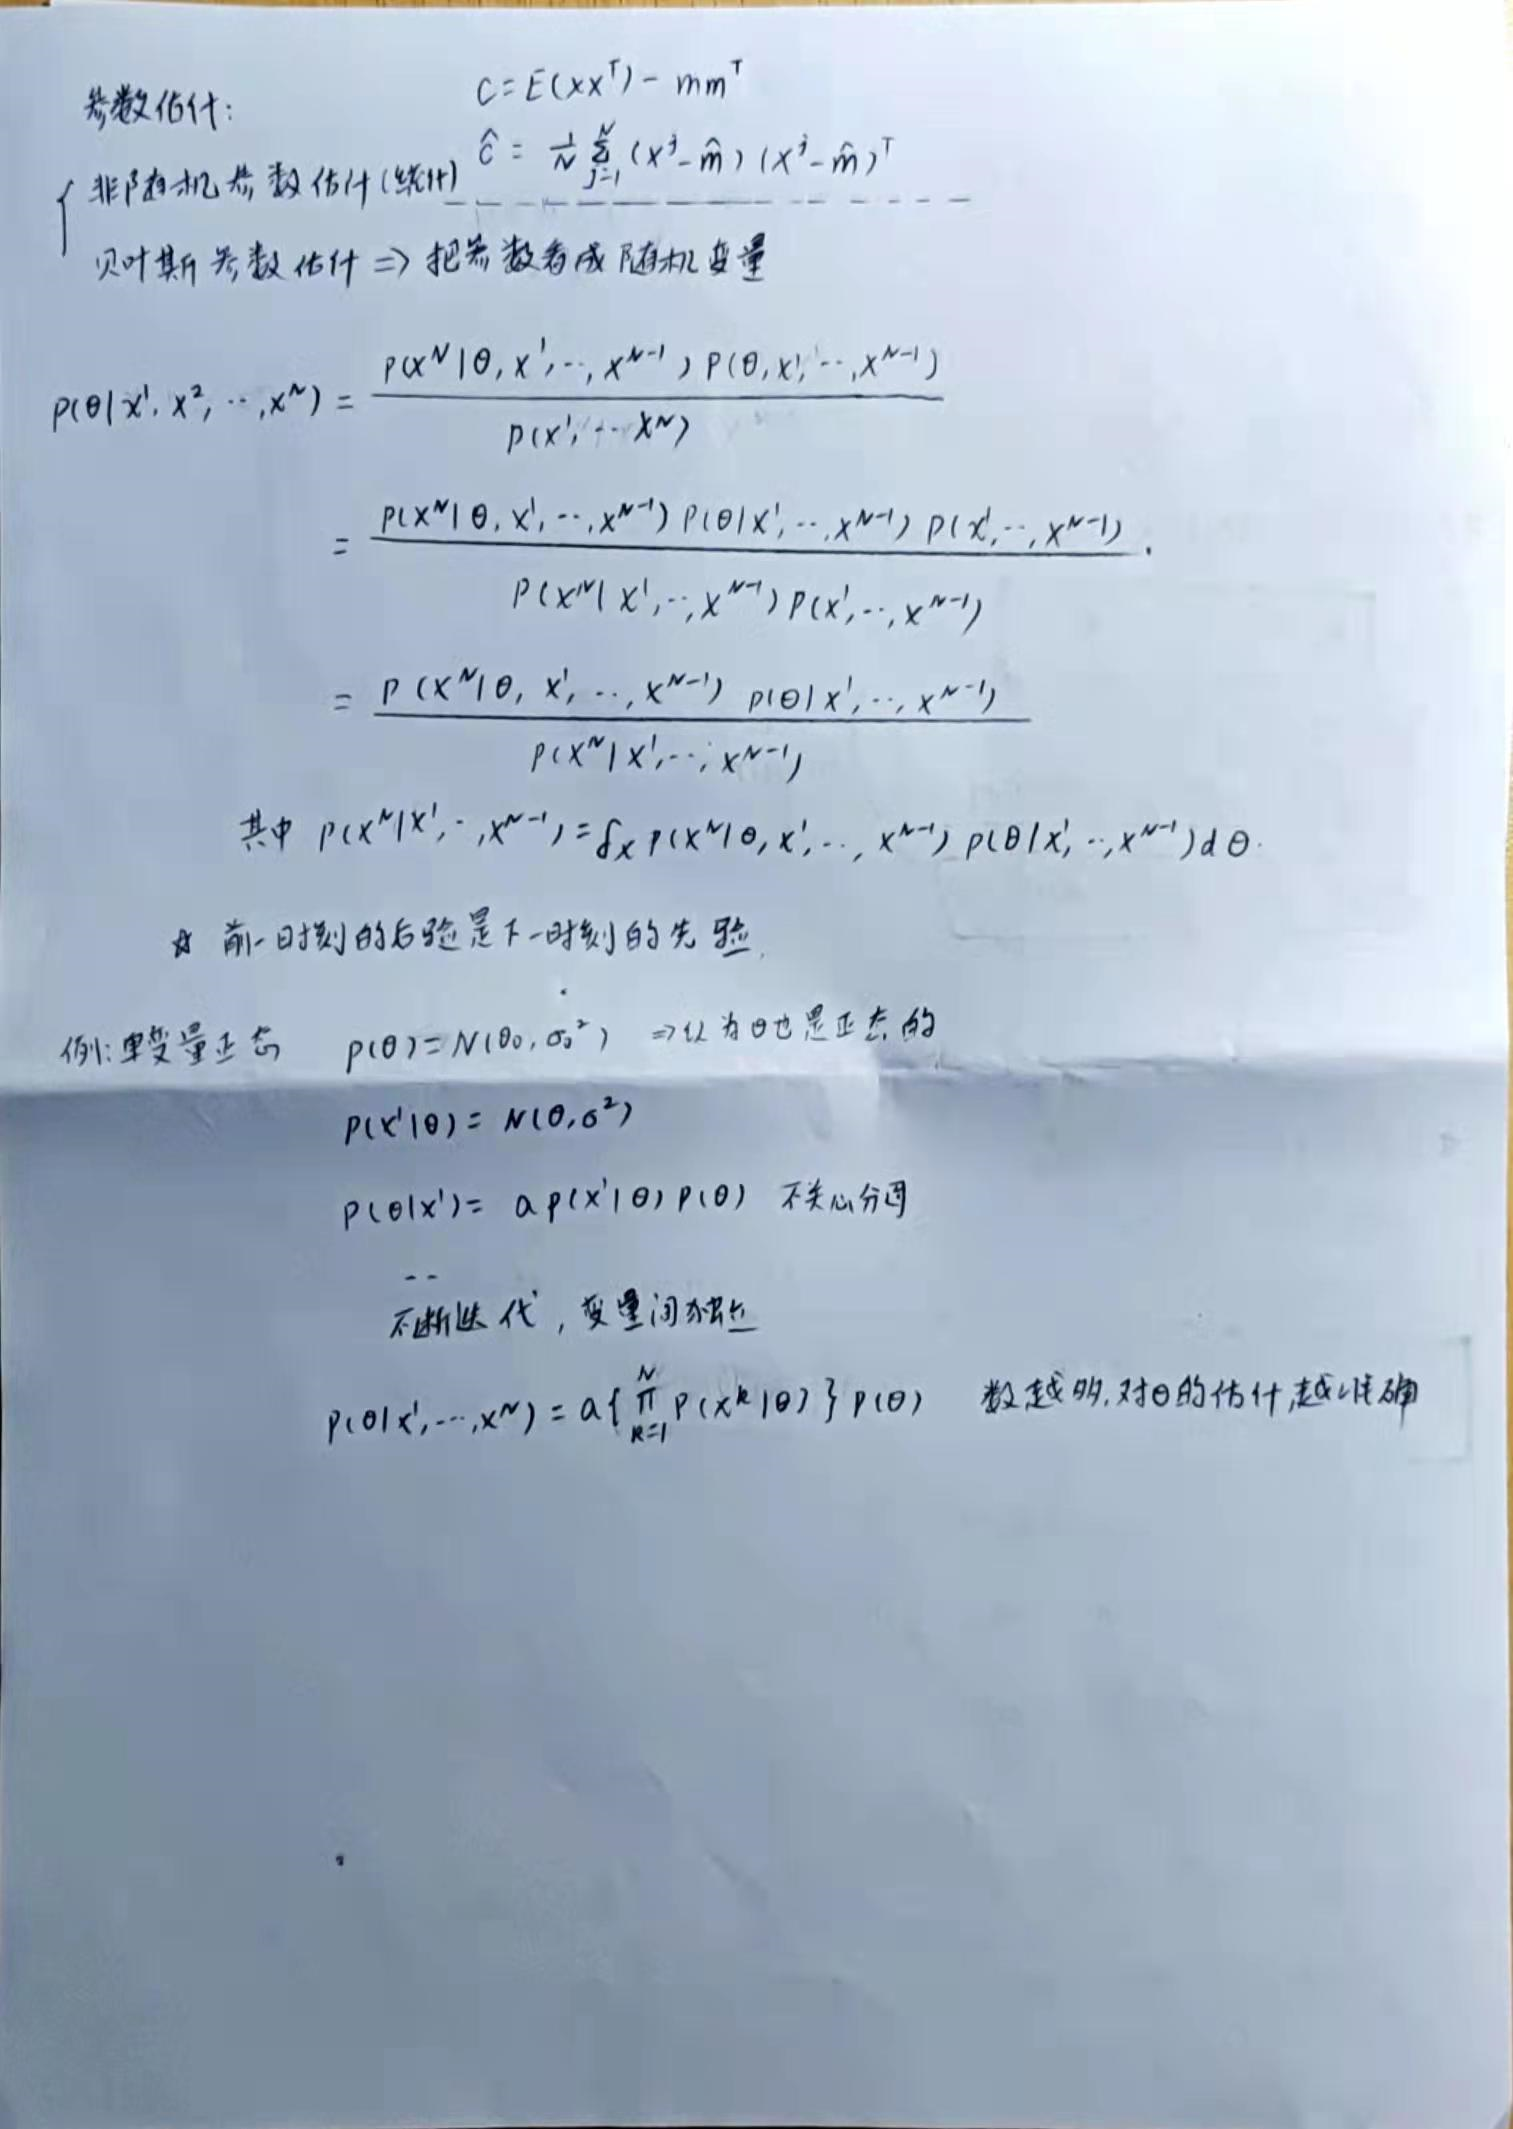 参数估计:
C = E(xxᵀ) - mmᵀ
Ĉ = 1/N Σ_{j=1}^{N} (x^j - m̂)(x^j - m̂)ᵀ
{ 非随机参数估计(统计)
贝叶斯参数估计 ⇒ 把参数看成随机变量
P(θ|x¹, x², ‥, x^N) = P(x^N|θ, x¹, ‥, x^{N-1}) P(θ, x¹, ‥, x^{N-1}) / P(x¹, ‥ x^N)
= P(x^N|θ, x¹, ‥, x^{N-1}) P(θ|x¹, ‥, x^{N-1}) P(x¹, ‥, x^{N-1}) / P(x^N|x¹, ‥, x^{N-1}) P(x¹, ‥, x^{N-1}) .
= P(x^N|θ, x¹, ‥, x^{N-1}) P(θ|x¹, ‥, x^{N-1}) / P(x^N|x¹, ‥, x^{N-1})
其中 P(x^N|x¹, ‥, x^{N-1}) = ∫_x P(x^N|θ, x¹, ‥, x^{N-1}) P(θ|x¹, ‥, x^{N-1}) dθ.
☆ 前一时刻的后验是下一时刻的先验.
例: 单变量正态 P(θ) = N(θ₀, σ₀²) ⇒认为θ也是正态的
P(x¹|θ) = N(θ, σ²)
P(θ|x¹) = a P(x¹|θ) P(θ) 不关心分母
‥
不断迭代, 变量间独立
P(θ|x¹, …, x^N) = a{ Π_{k=1}^{N} P(x^k|θ) } P(θ) 数越多, 对θ的估计越准确